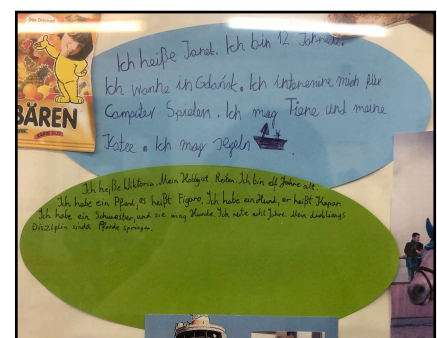 Das Original
BÄREN
Ich heiße Janek. Ich bin 12 Jahre alt.
Ich wonhe in Gdańsk. Ich interesire mich für
Computer Spielen. Ich mag Tiere und meine
Katze. Ich mag segeln
Ich heiße Wiktoria. Mein Hobby ist Reiten. Ich bin elf Jahre alt.
Ich habe ein Pferd, es heißt Figaro. Ich habe ein Hund, er heißt Kapar
Ich habe ein Schwester, und sie mag Hunde. Ich reite acht Jahre. Mein Lieblings
Disziplin sinds Pferde springen.